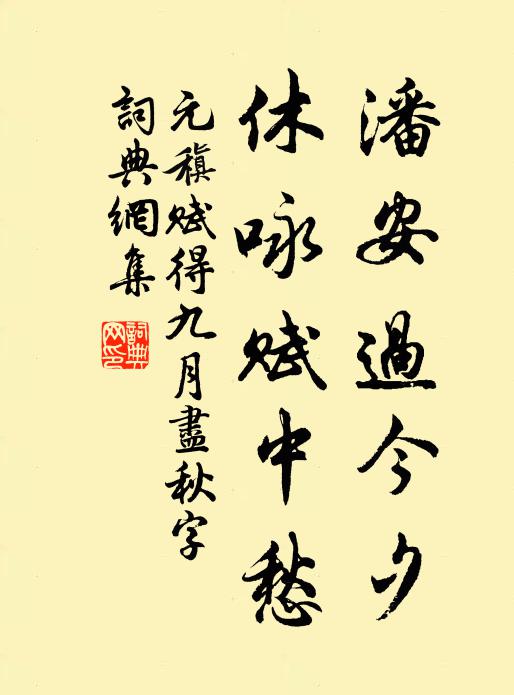 潘安過今夕
休咏賦中愁
元稹賦得九月盡秋字
詞典網集
詞典網印